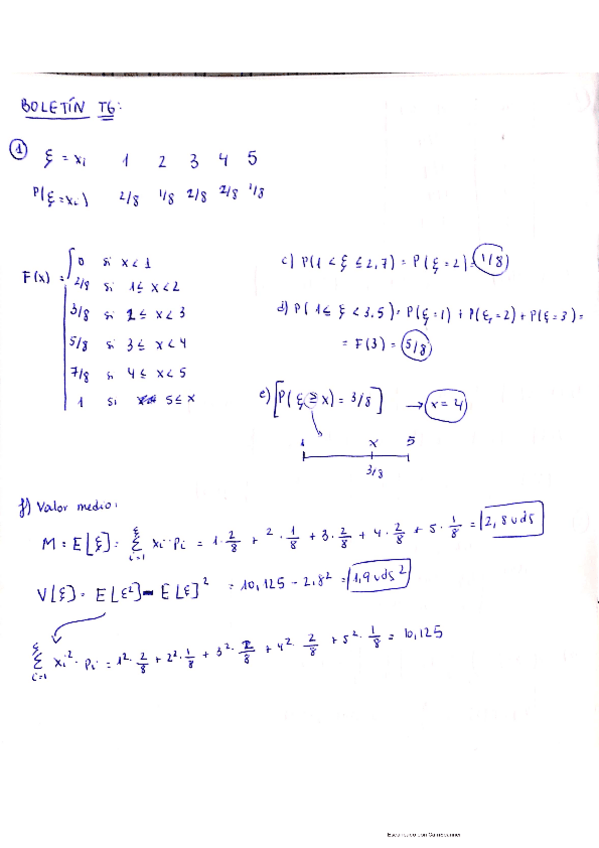 BOLETÍN T6:
① ξ = xi 1 2 3 4 5
P(ξ = xi) 2/8 1/8 2/8 2/8 1/8
F(x) =
0 si x < 1
2/8 si 1 ≤ x < 2
3/8 si 2 ≤ x < 3
5/8 si 3 ≤ x < 4
7/8 si 4 ≤ x < 5
1 si 5 ≤ x
c) P(1 < ξ ≤ 2,7) = P(ξ = 2) = 1/8
d) P(1 ≤ ξ < 3.5) = P(ξ = 1) + P(ξ = 2) + P(ξ = 3) =
= F(3) = 5/8
e) [P(ξ ≥ x) = 3/8] → x = 4
1 x 5
3/8
f) Valor medio:
M = E[ξ] = Σ i=1 xi · pi = 1 · 2/8 + 2 · 1/8 + 3 · 2/8 + 4 · 2/8 + 5 · 1/8 = 2,8 uds
V[ξ] = E[ξ²] - E[ξ]² = 10,125 - 2,8² = 1,9 uds²
Σ i=1 xi² · pi = 1² · 2/8 + 2² · 1/8 + 3² · 2/8 + 4² · 2/8 + 5² · 1/8 = 10,125
Escaneado con CamScanner